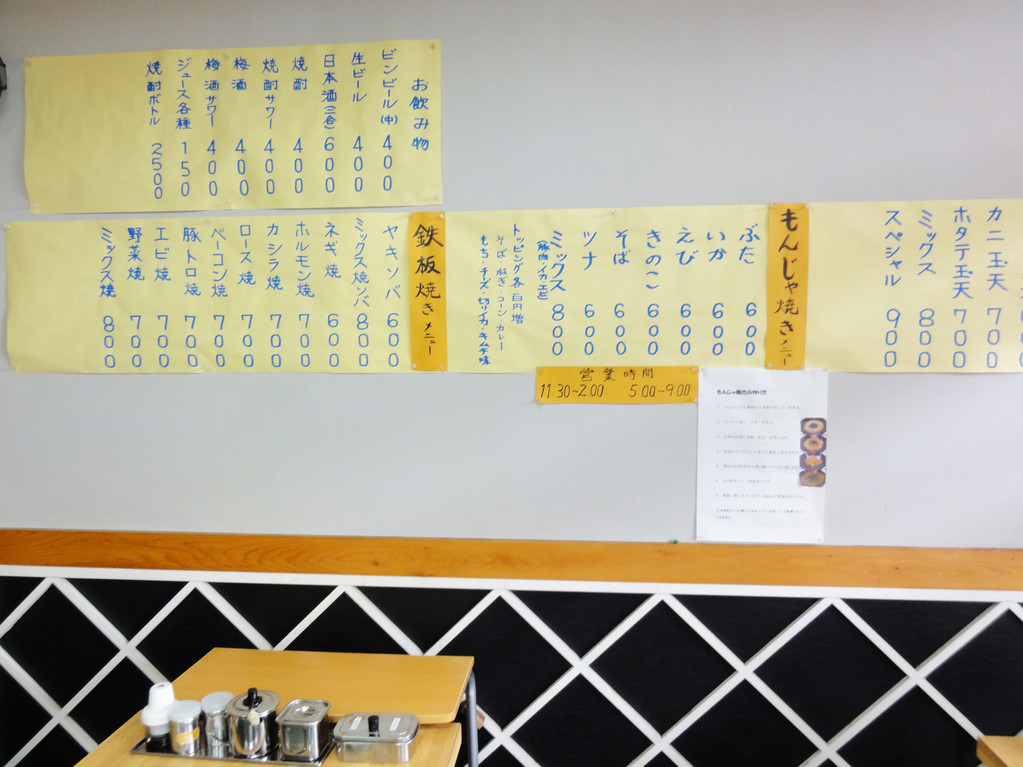 お飲み物
ビンビール(中) 400
生ビール 400
日本酒(二合) 600
焼酎 400
焼酎サワー 400
梅酒 400
梅酒サワー 400
ジュース各種 150
焼酎ボトル 2500
カニ玉天 700
ホタテ玉天 700
ミックス 800
スペシャル 900
もんじゃ焼きメニュー
ぶた 600
いか 600
えび 600
きのこ 600
そば 600
ツナ 600
ミックス 800
(豚肉イカエビ)
トッピング各百円増
そば・ねぎ・コーン・カレー
もち・チーズ・切りイカ・キムチ味
鉄板焼きメニュー
ヤキソバ 600
ミックス焼ソバ 800
ネギ焼 600
ホルモン焼 700
カシラ焼 700
ロース焼 700
ベーコン焼 700
豚トロ焼 700
エビ焼 700
野菜焼 700
ミックス焼 800
営業時間
11:30~2:00 5:00~9:00